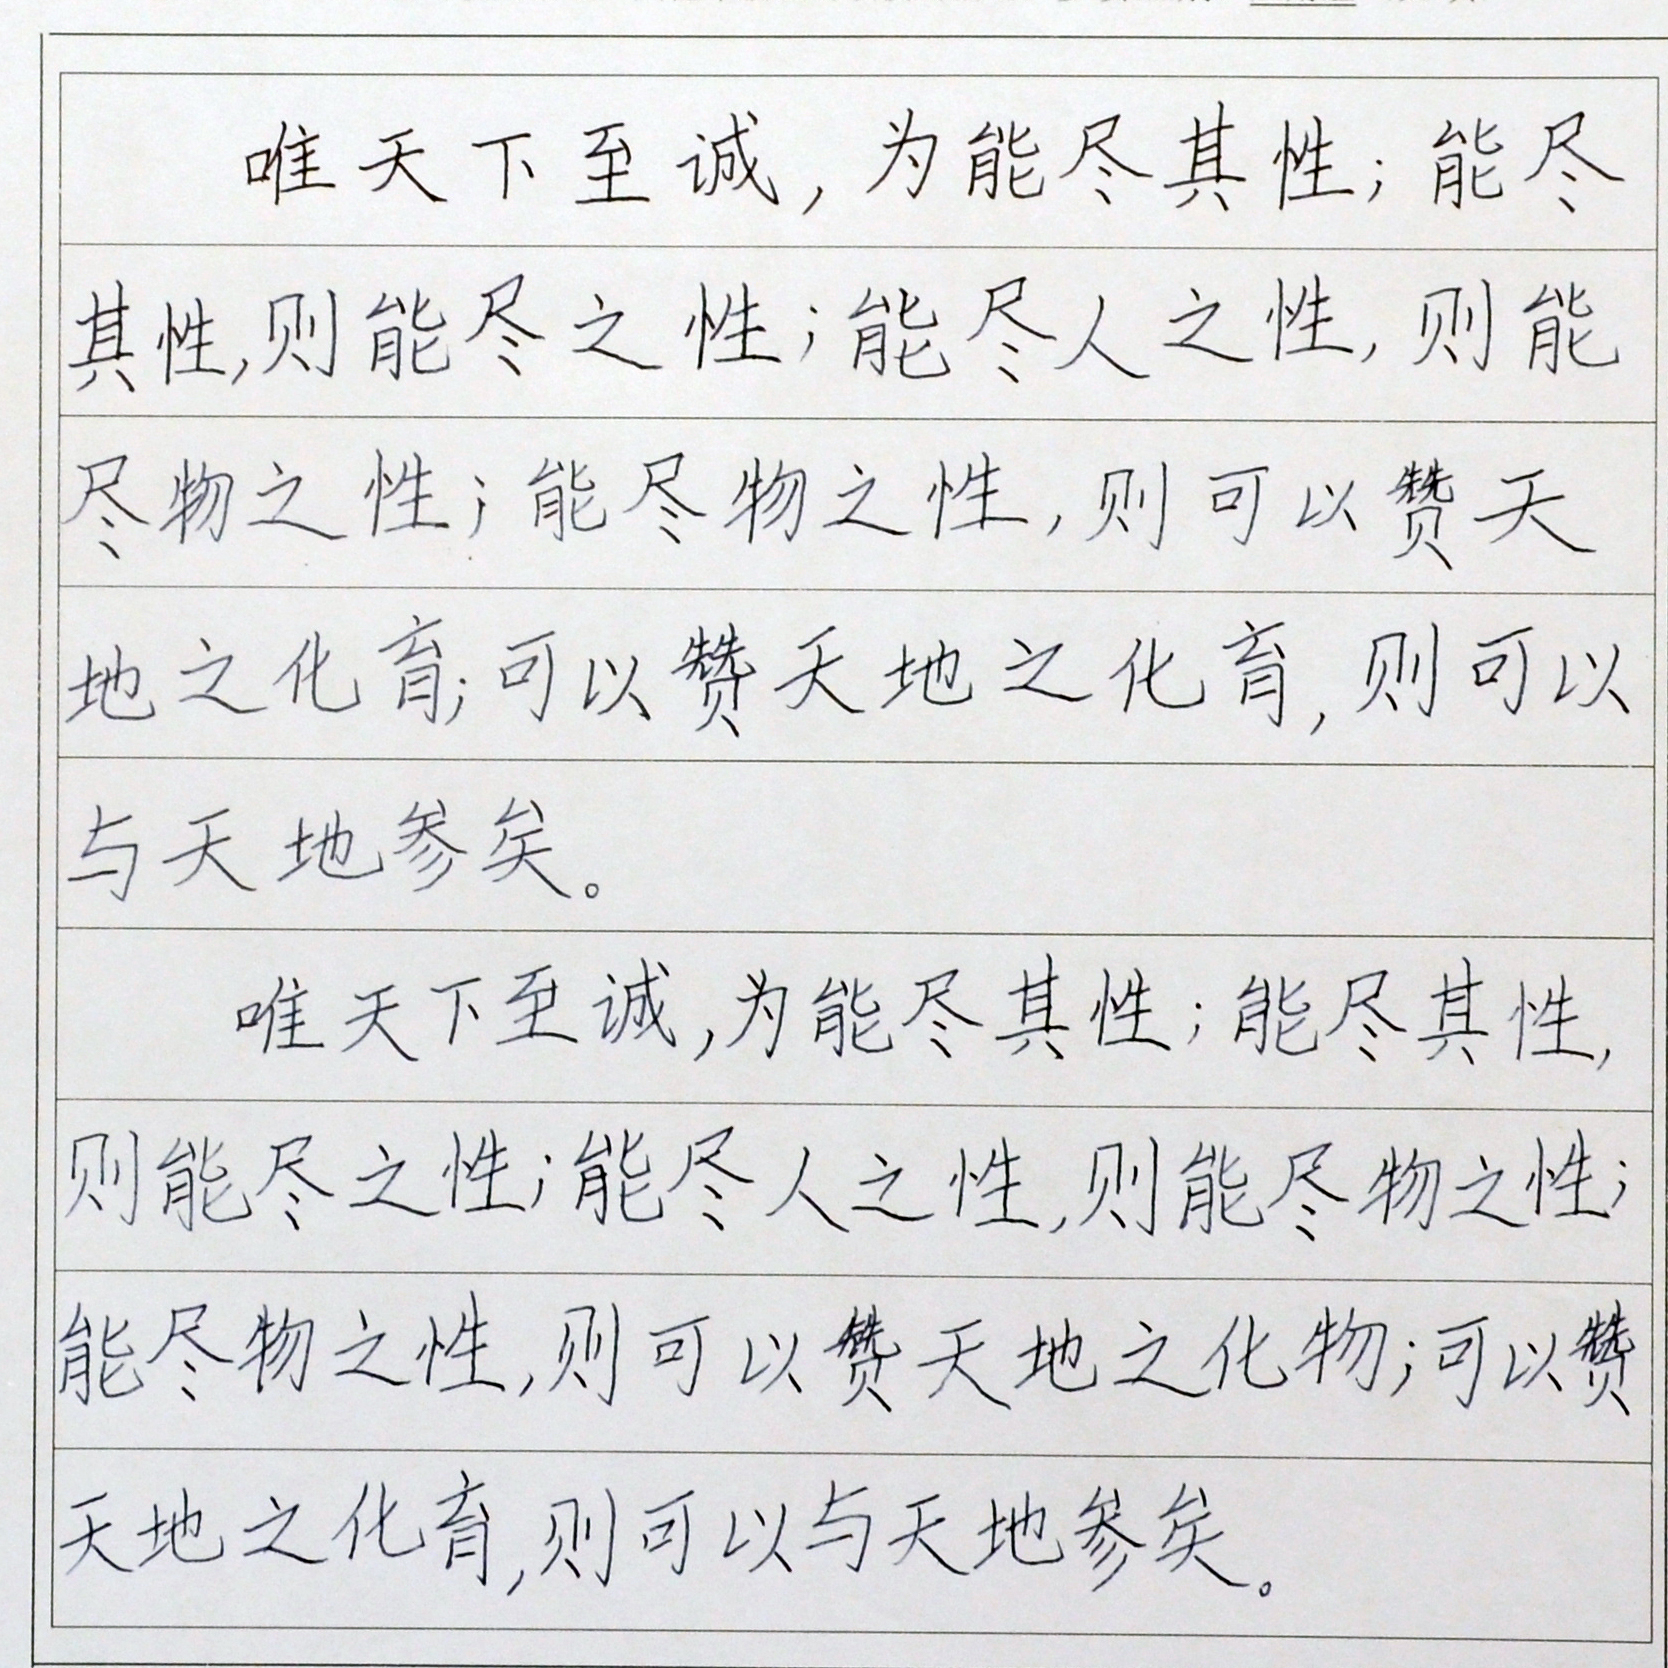 唯天下至诚，为能尽其性；能尽
其性，则能尽之性；能尽人之性，则能
尽物之性；能尽物之性，则可以赞天
地之化育；可以赞天地之化育，则可以
与天地参矣。
唯天下至诚，为能尽其性；能尽其性，
则能尽之性；能尽人之性，则能尽物之性；
能尽物之性，则可以赞天地之化物；可以赞
天地之化育，则可以与天地参矣。